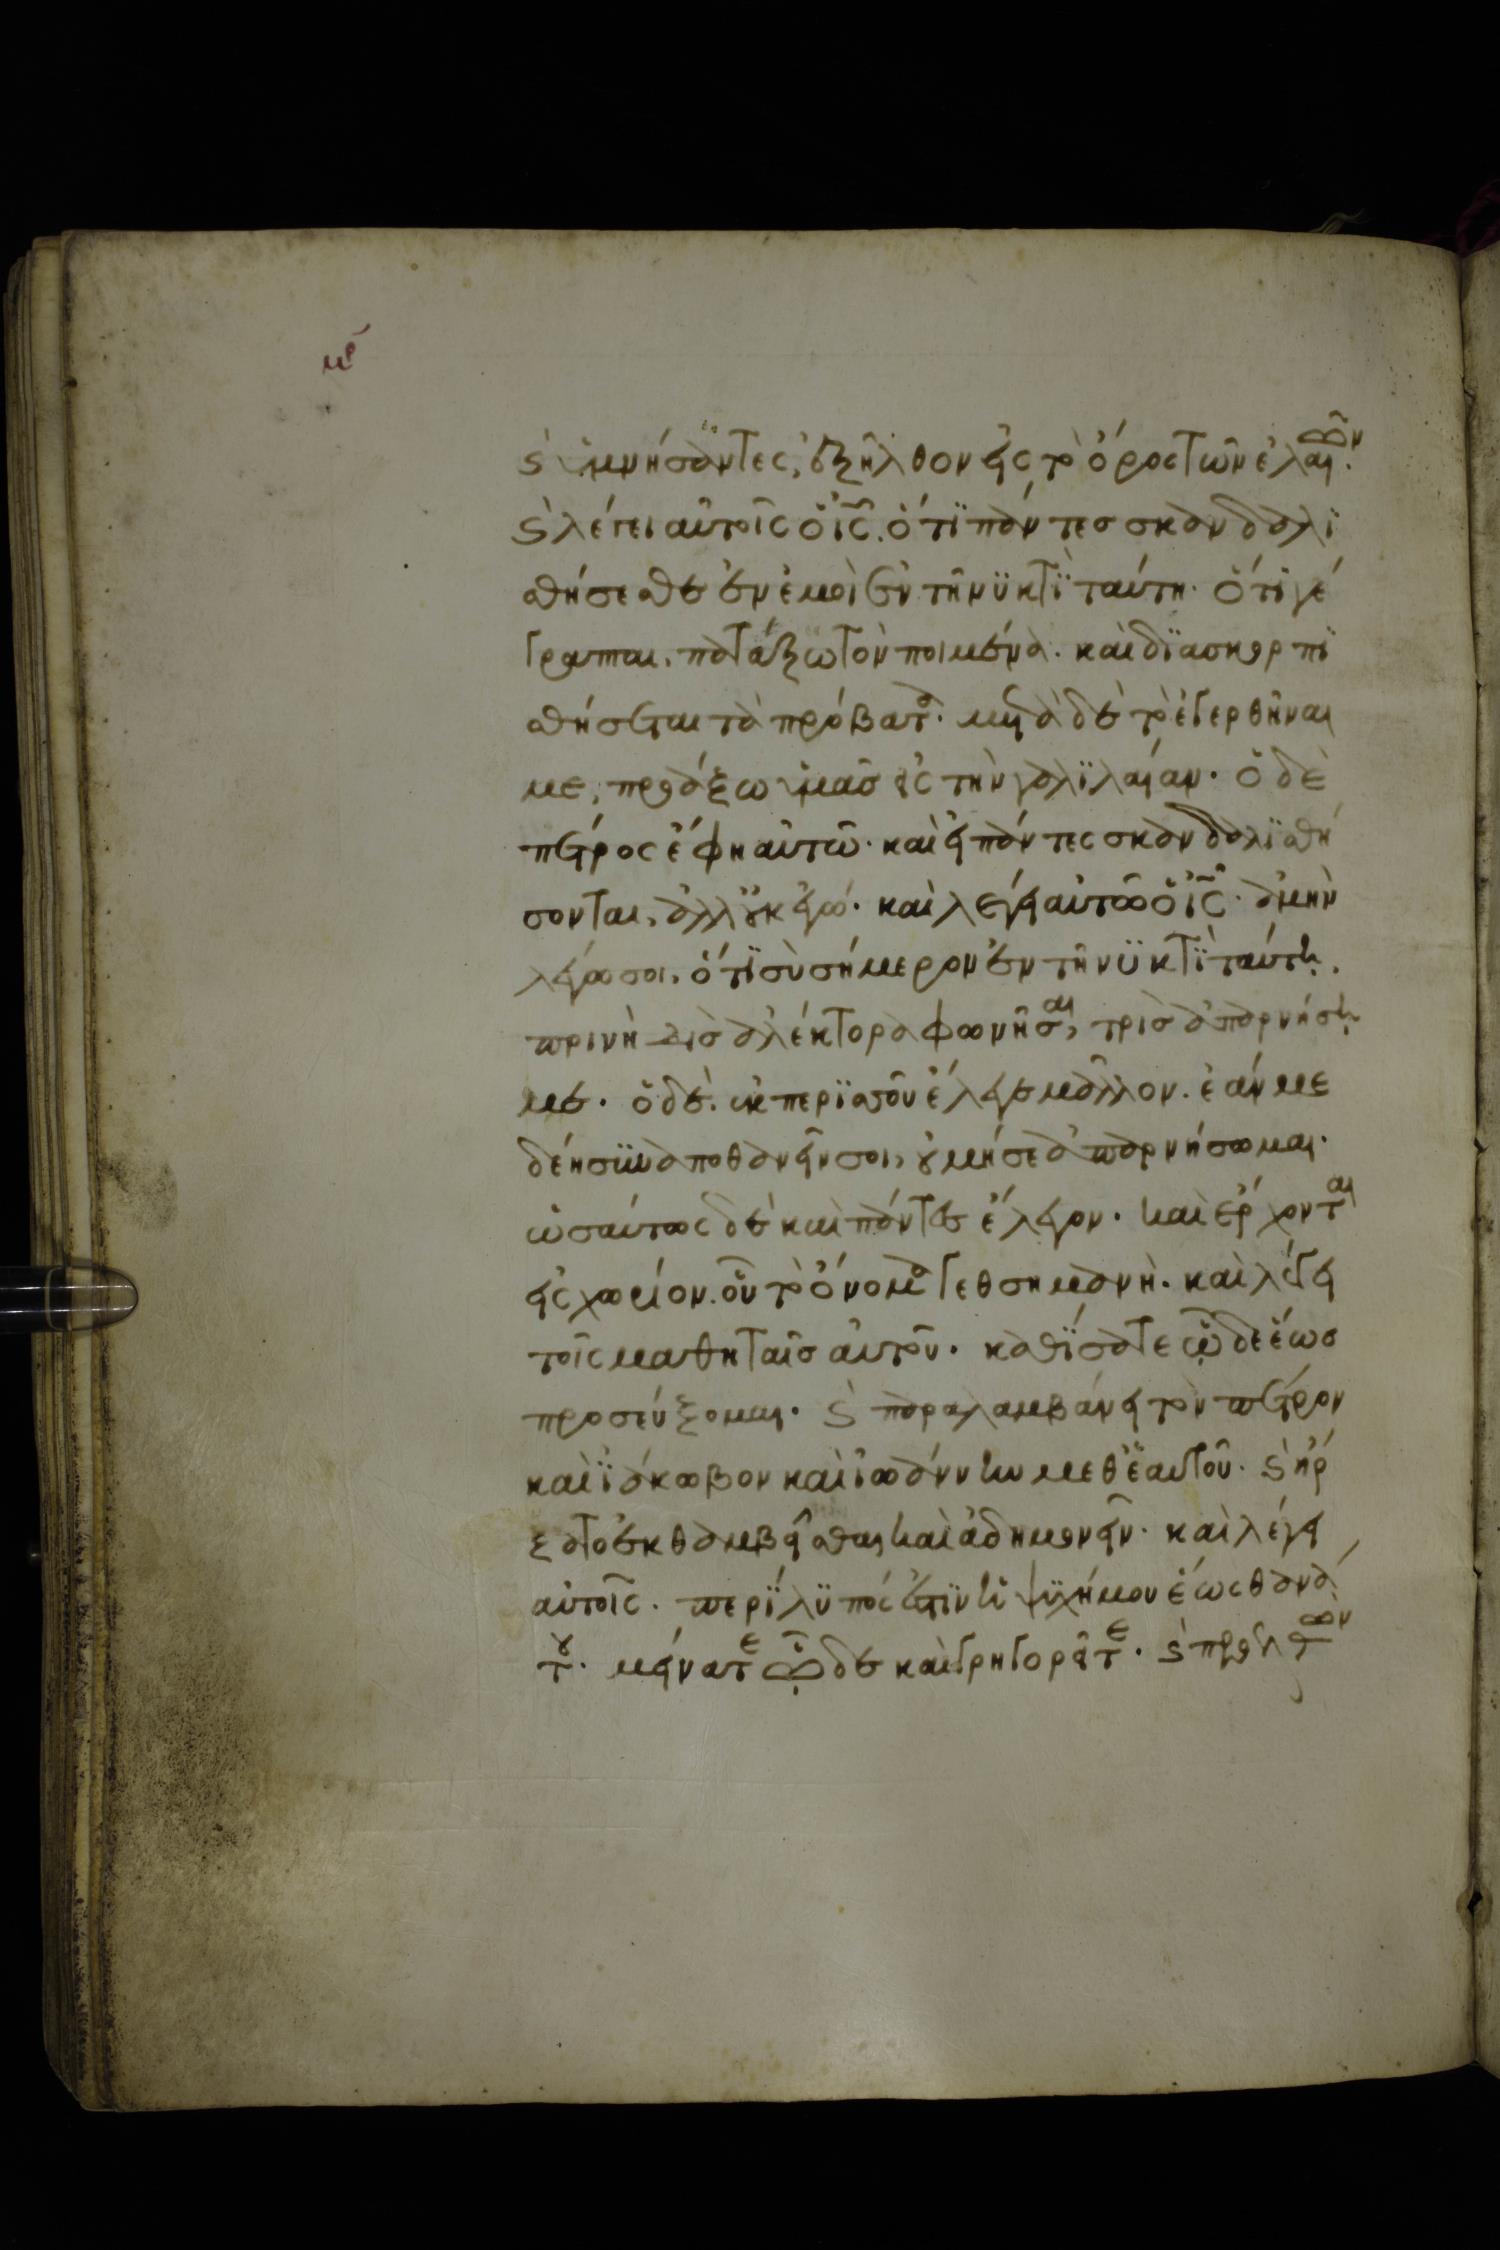 μρ
ϛ ὑμνήσαντες, ἐξῆλθον εἰς τὸ ὄρος τῶν ἐλαιῶν.
ϛ λέγει αὐτοῖς ὁ ἰς. ὅτι πάντες σκανδαλι
σθήσεσθε ἐν ἐμοὶ ἐν τῆ νυκτὶ ταύτη. ὅτι γέ
γραπται, πατάξω τὸν ποιμένα. καὶ διασκορπι
σθήσεται τὰ πρόβατα. μετὰ δὲ τὸ ἐγερθῆναι
με, προάξω ὑμᾶς εἰς τὴν γαλιλαίαν. ὁ δὲ
πέτρος ἔφη αὐτῶ. καὶ εἰ πάντες σκανδαλισθή
σονται, ἀλλ οὐκ ἐγώ. καὶ λέγει αὐτῶ ὁ ἰς. ἀμὴν
λέγω σοι, ὅτι σὺ σήμερον ἐν τῆ νυκτὶ ταύτη.
πρινὴ δὶς ἀλέκτορα φωνῆσαι, τρὶς ἀπαρνήση
με. ὁ δὲ. ἐκ περισσοῦ ἔλεγε μᾶλλον. ἐάν με
δέη συναποθανεῖν σοι, οὐ μή σε ἀπαρνήσωμαι.
ὡσαύτως δὲ καὶ πάντες ἔλεγον. καὶ ἔρχονται
εἰς χωρίον. οὗ τὸ ὄνομα γεθσημανή. καὶ λέγει
τοῖς μαθηταῖς αὐτοῦ. καθίσατε ὧδε ἕως
προσεύξομαι. ϛ παραλαμβάνει τὸν πέτρον
καὶ ἰάκωβον καὶ ἰωάννην μεθ ἑαυτοῦ. ϛ ἤρ
ξατο ἐκθαμβεῖσθαι καὶ ἀδημονεῖν. καὶ λέγει
αὐτοῖς. περίλυπός ἐστιν ἡ ψυχή μου ἕως θανά
του. μείνατε ὧδε καὶ γρηγορεῖτε. ϛ προελθὼν